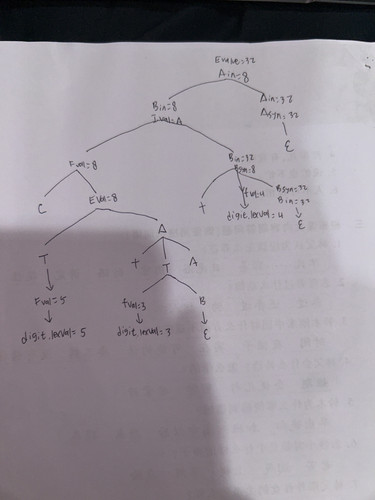 Evalue=32
Ain=8
Bin=8
Ain=32
Tval=A
Asyn=32
ε
Fval=8
Bin=32
Bsyn=8
C
Eval=8
+
fval=4
Bsyn=32
Bin=32
digit.lexval=4
ε
A
T
+
T
A
Fval=5
fval=3
B
digit.lexval=5
digit.lexval=3
ε